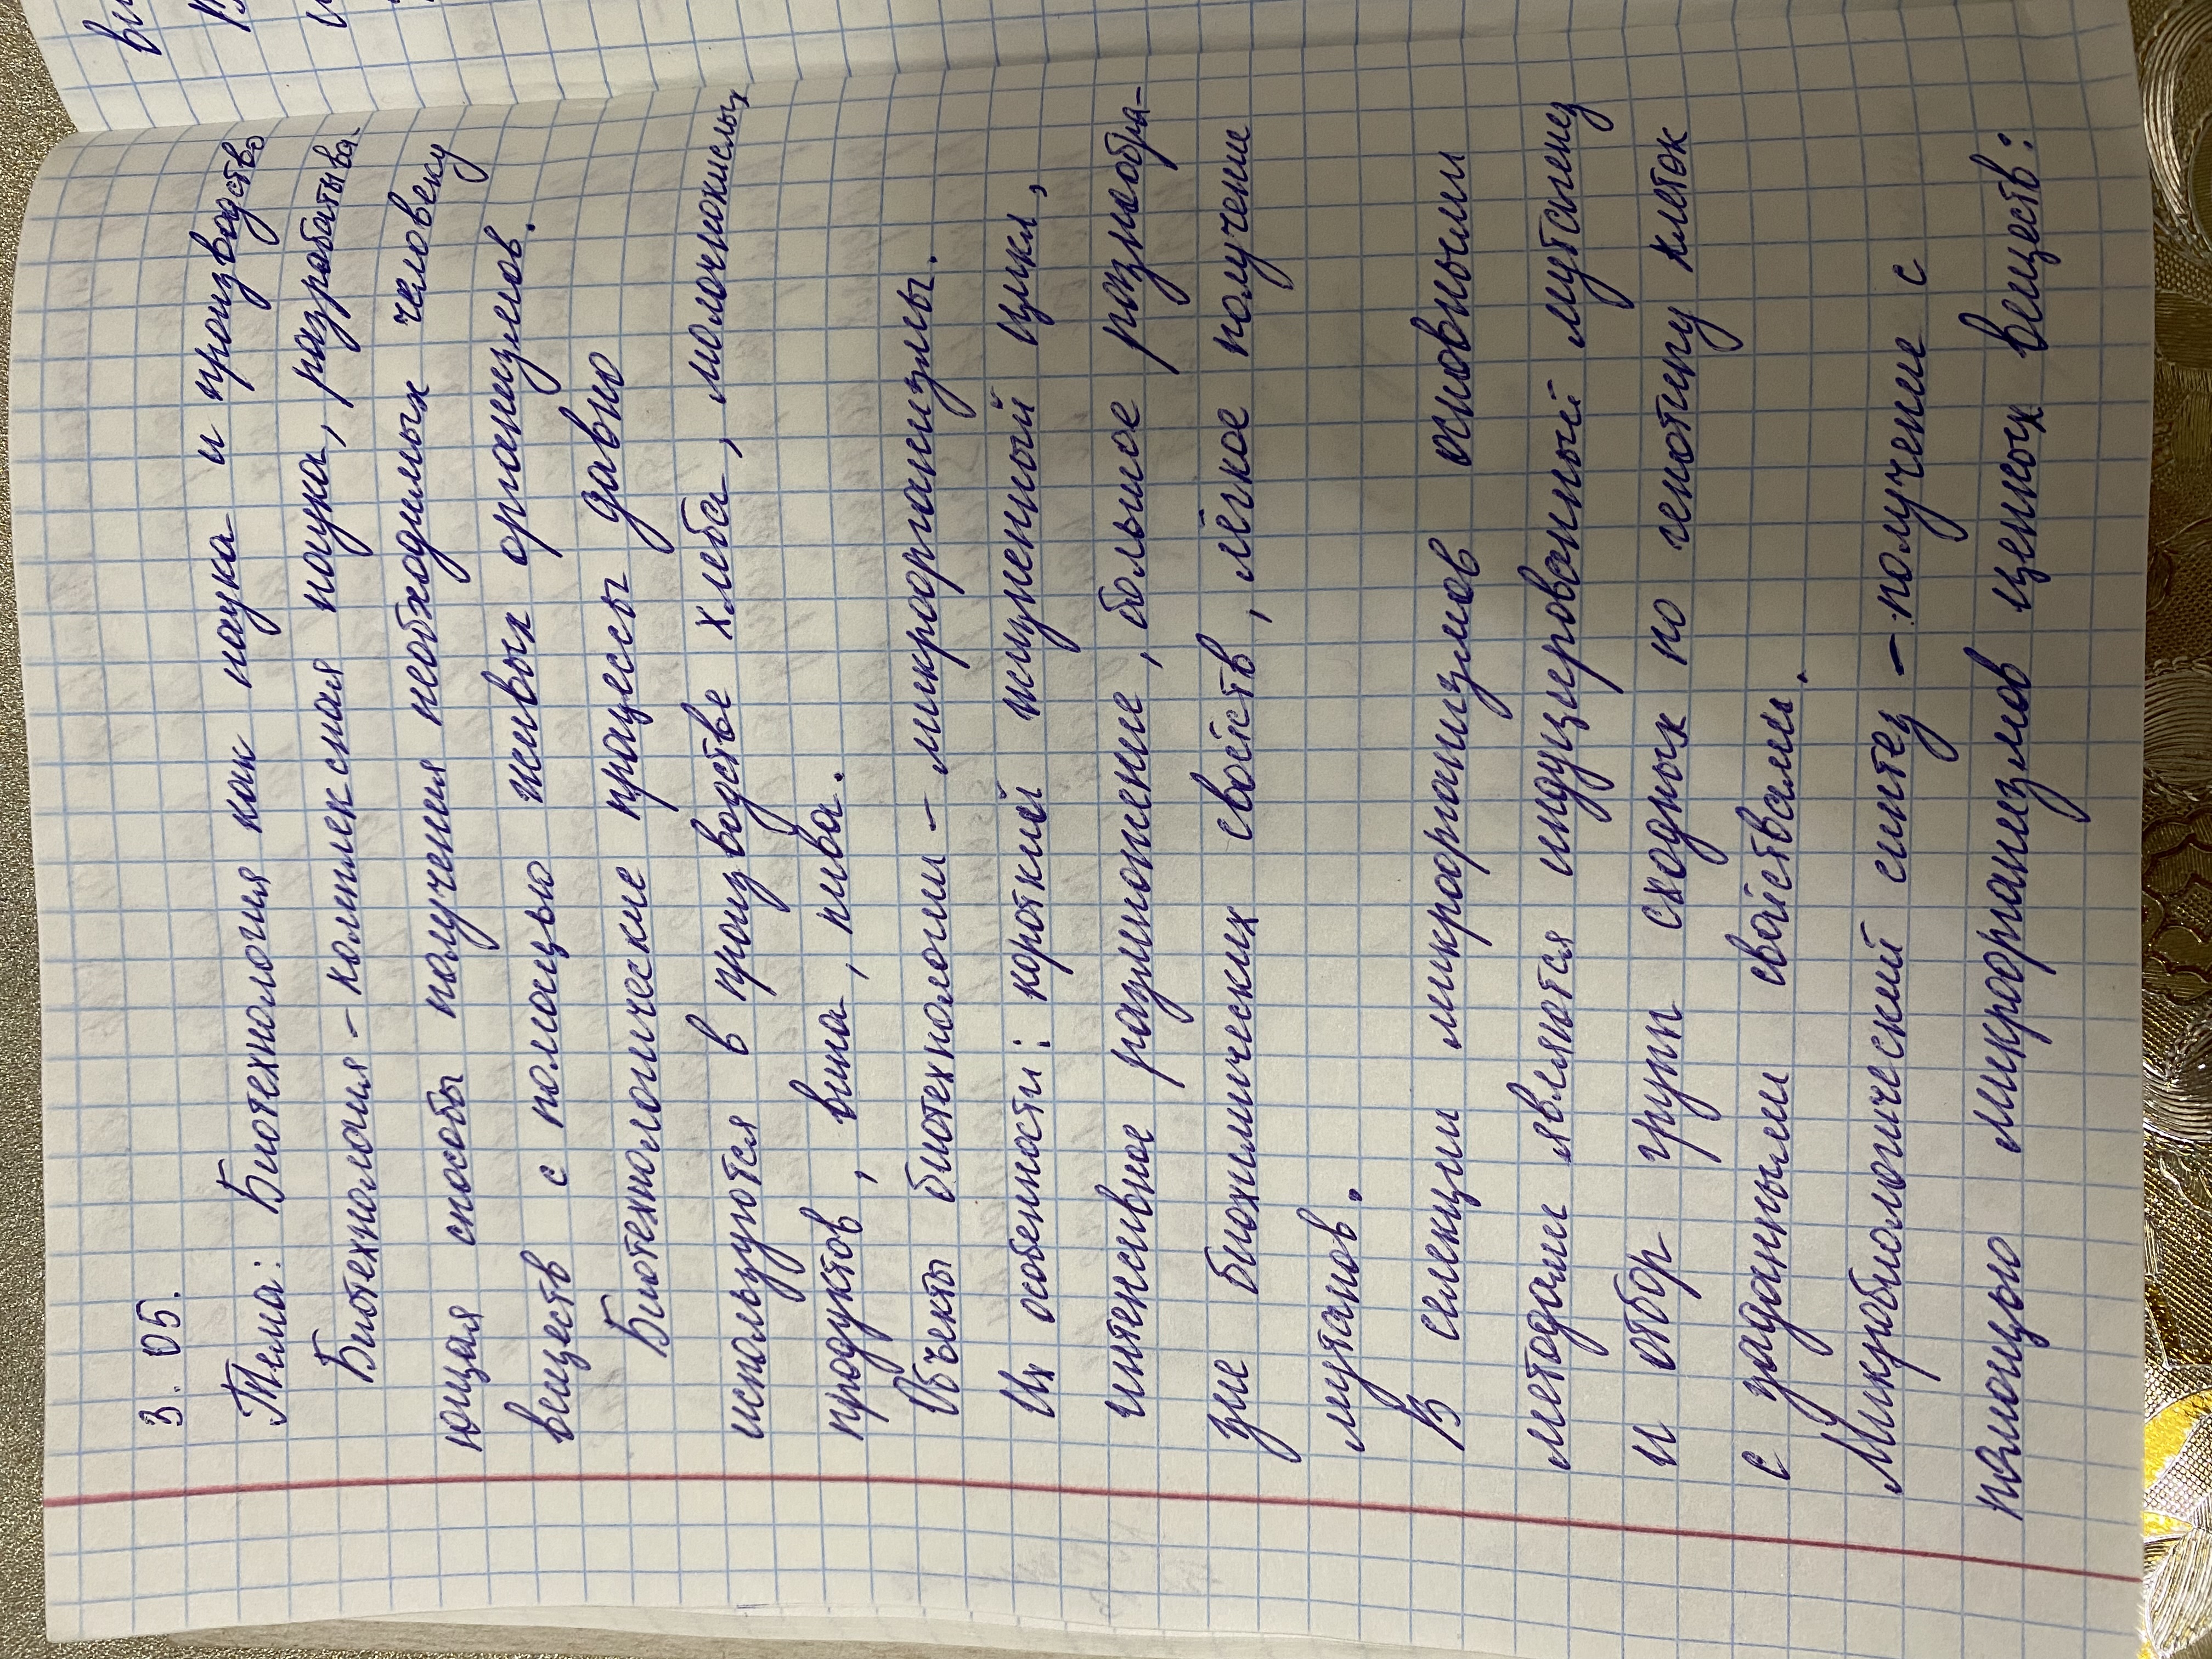 3. 05.
Тема: Биотехнология как наука и производство
Биотехнология – комплексная наука, разрабатыва-
ющая способы получения необходимых человеку
веществ с помощью живых организмов.
Биотехнологические процессы давно
используются в производстве хлеба, молочнокислых
продуктов, вина, пива.
Объекты биотехнологии – микроорганизмы.
Их особенности: короткий жизненный цикл,
интенсивное размножение, большое разнообра-
зие биохимических свойств, лёгкое получение
мутанов.
В селекции микроорганизмов основными
методами являются индуцированный мутагенез
и отбор групп сходных по генотипу клеток
с заданными свойствами.
Микробиологический синтез – получение с
помощью микроорганизмов ценных веществ: